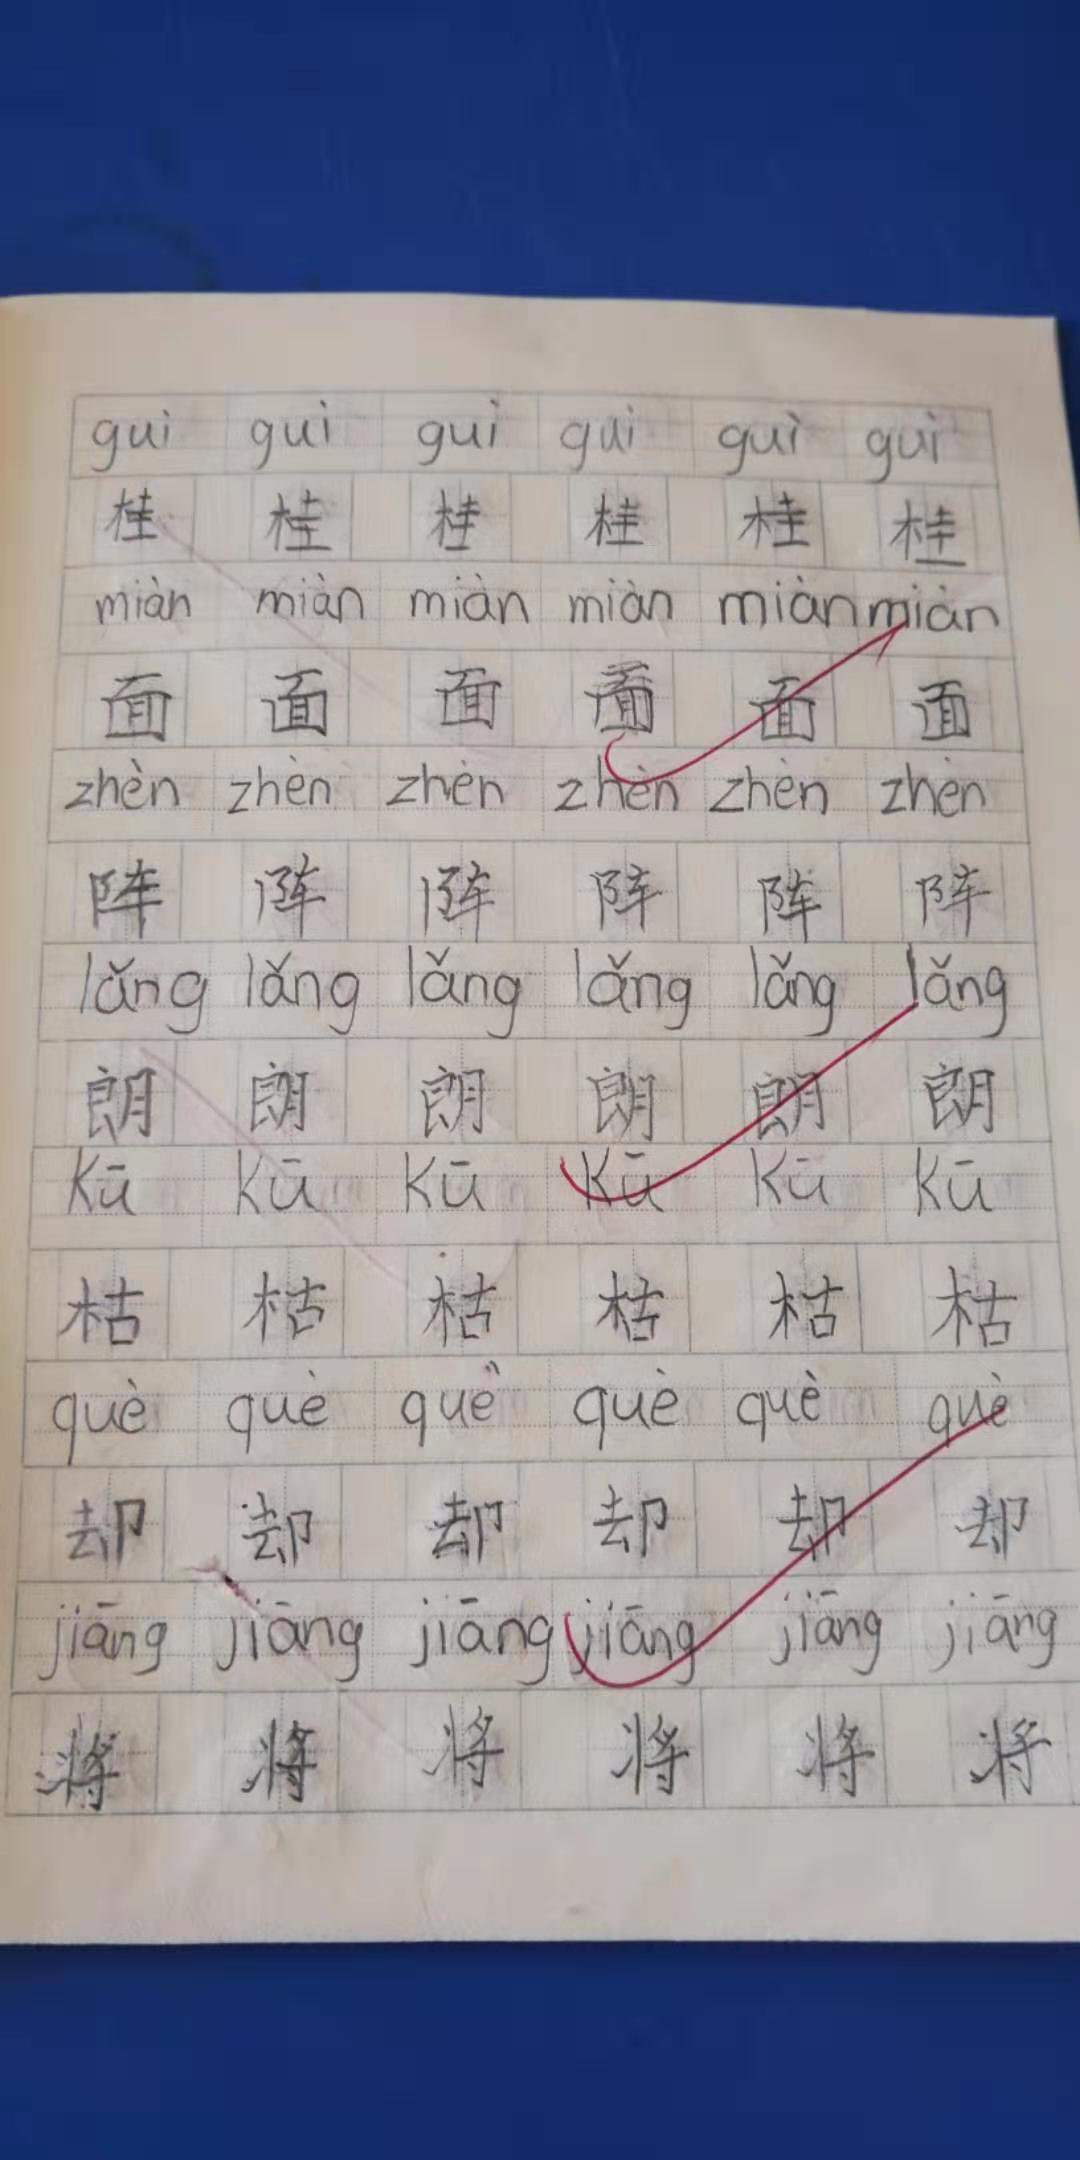 guì guì guì guì guì guì
桂 桂 桂 桂 桂 桂
miàn miàn miàn miàn miàn miàn
面 面 面 面 面 面
zhèn zhèn zhèn zhèn zhèn zhèn
阵 阵 阵 阵 阵 阵
lǎng lǎng lǎng lǎng lǎng lǎng
朗 朗 朗 朗 朗 朗
kū kū kū kū kū kū
枯 枯 枯 枯 枯 枯
què què què què què què
却 却 却 却 却 却
jiāng jiāng jiāng jiāng jiāng jiāng
将 将 将 将 将 将